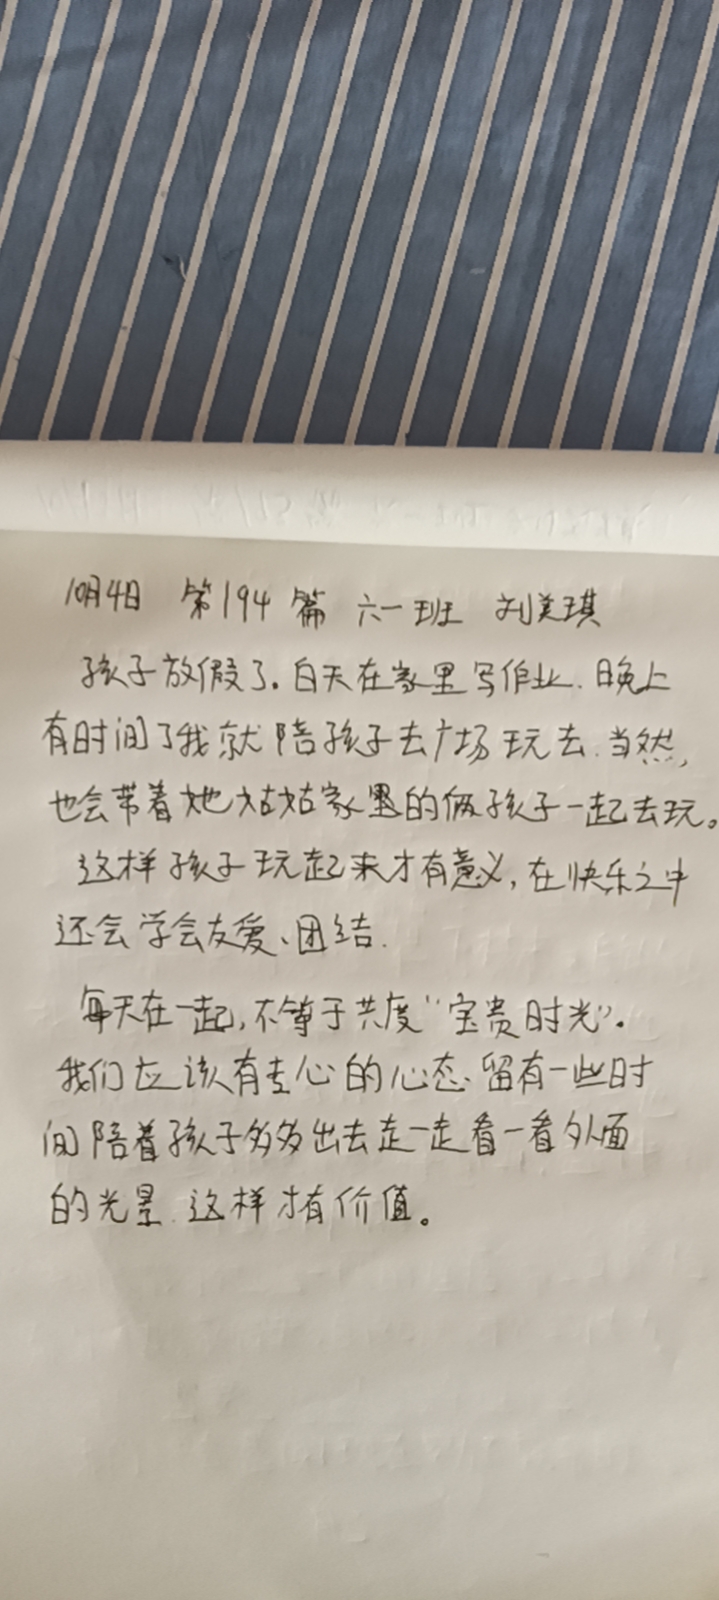 10月4日 第194篇 六一班 刘美琪
孩子放假了.白天在家里写作业.晚上
有时间了我就陪孩子去广场玩去.当然,
也会带着她姑姑家里的俩孩子一起去玩。
这样孩子玩起来才有意义,在快乐之中
还会学会友爱、团结.
每天在一起,不等于共度“宝贵时光”.
我们应该有专心的心态.留有一些时
间陪着孩子多多出去走一走看一看外面
的光景.这样才有价值。